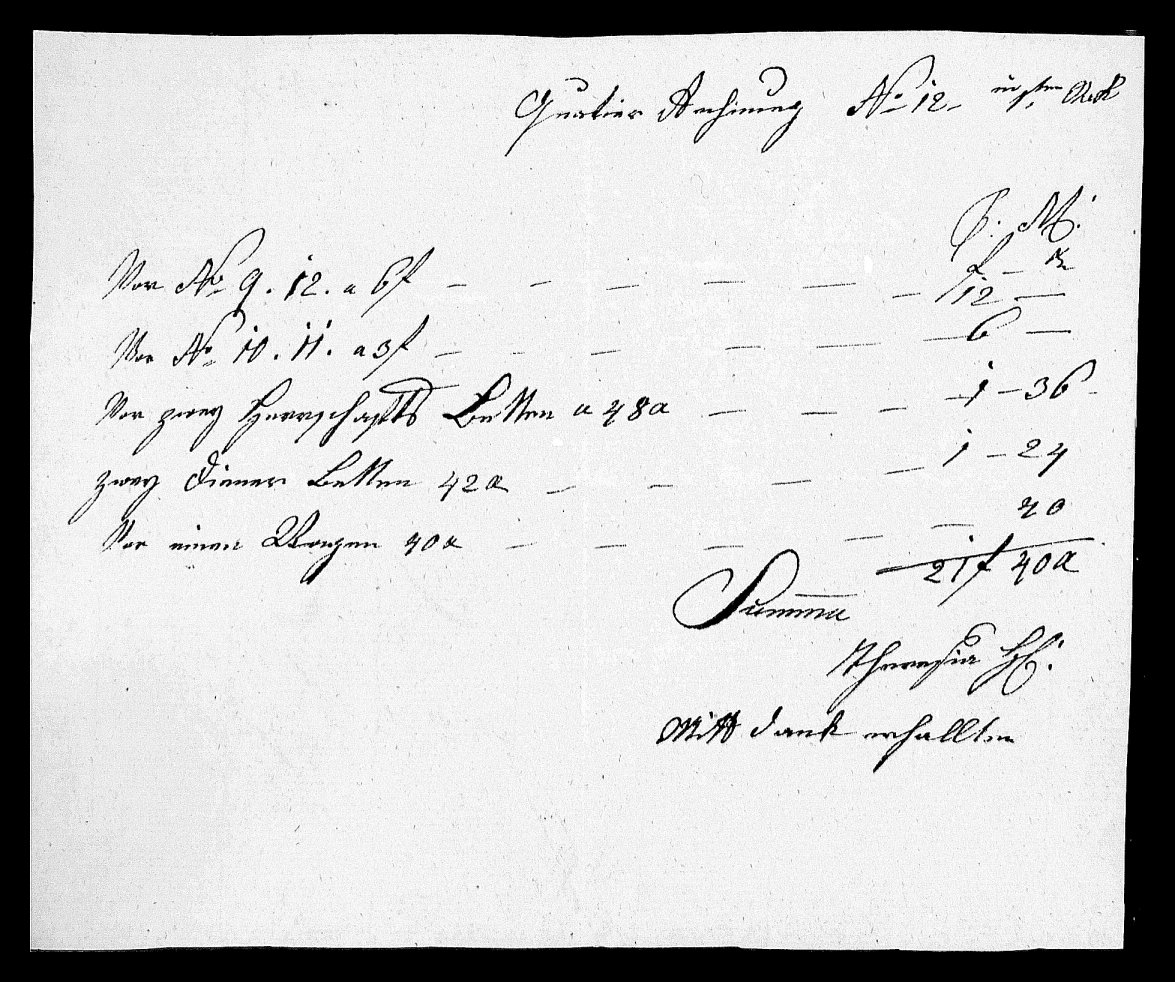 Quatier Rechnung No 12
f x
Vor No 9. 12. a 6 f — — — — — — 12 —
Vor No 10. 11. a 3 f — — — — — — 6 —
Vor zwey Herrschafts Betten a 48 x — — — 1 — 36
zwey Diener Betten 42 x — — — — 1 — 24
Vor einen Wagen 40 x — — — — — — 40
21 f 40 x
Summa
Theresia
Mitt Danck erhallten